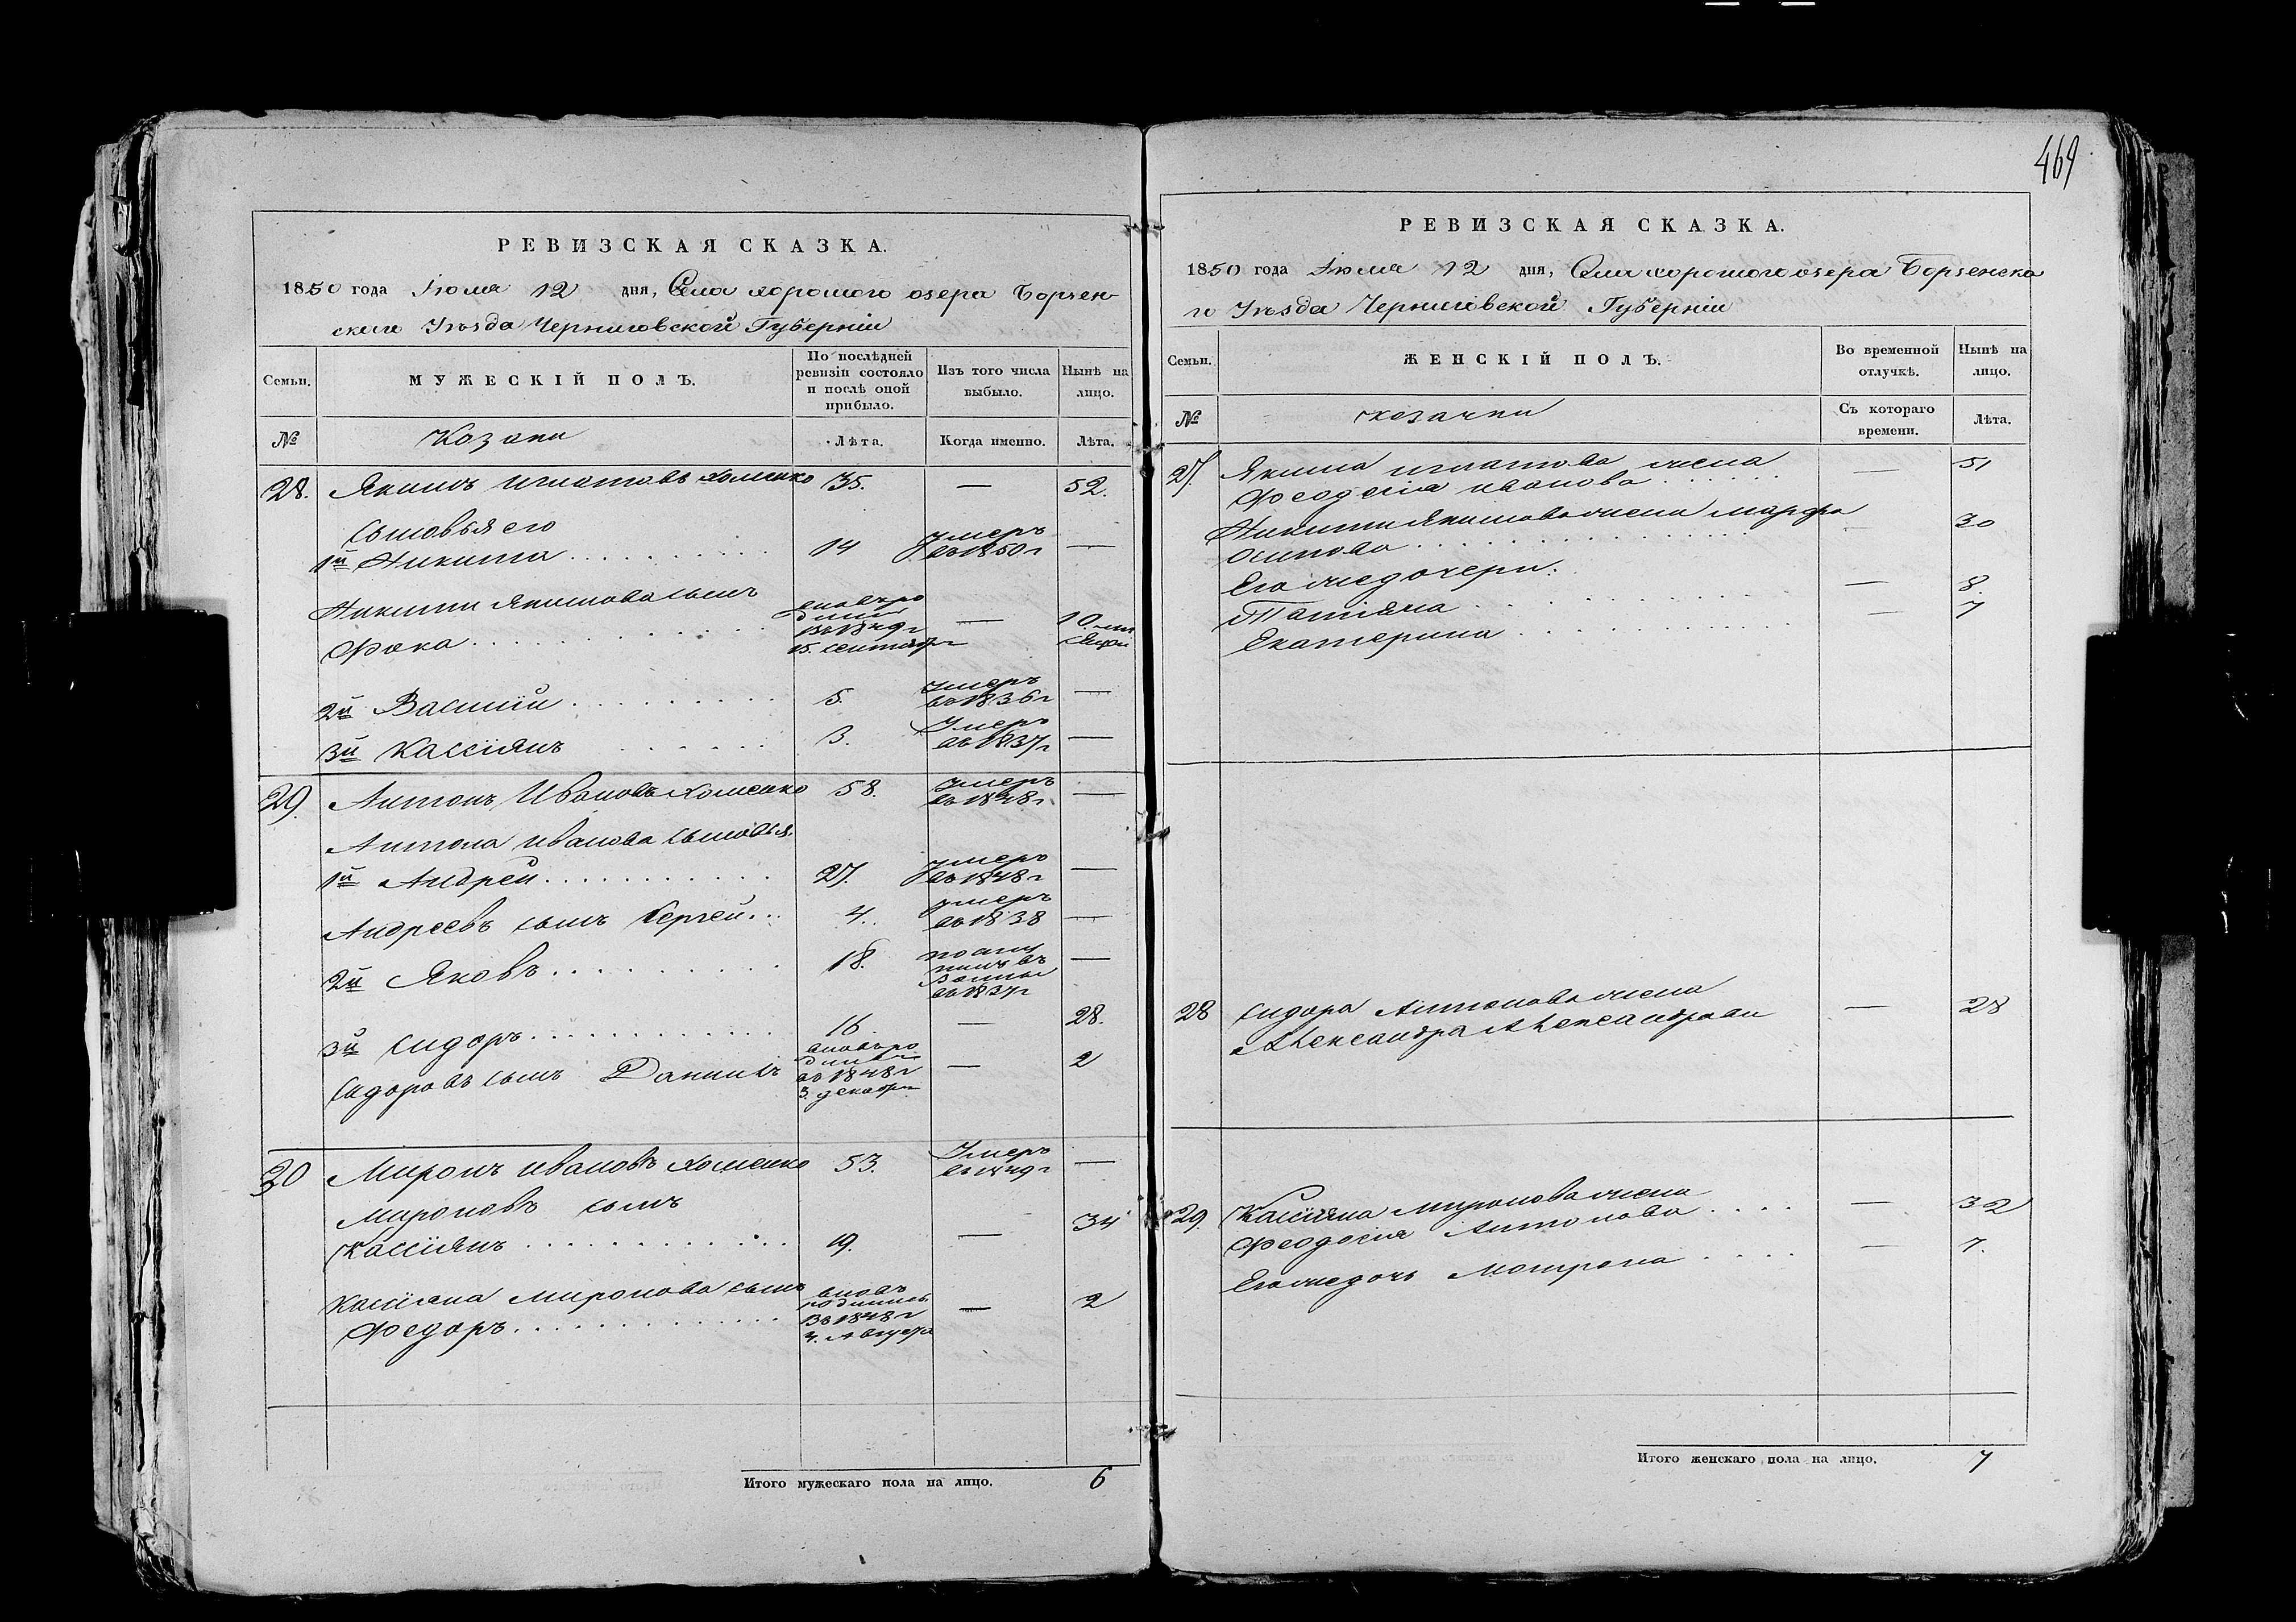 469
РЕВИЗСКАЯ СКАЗКА.
1850 года Іюля 12 дня, Села хорошого озера Борзен-
скаго Уѣзда Черниговской Губерніи
Семьи. МУЖЕСКІЙ ПОЛЪ. По послѣдней ревизіи состояло и послѣ оной прибыло. Изъ того числа выбыло. Нынѣ на лицо.
№ Козаки Лѣта. Когда именно. Лѣта.
28. Якимъ Игнатовъ Хоменко 35. — 52.
Сыновья его
1й Никита 14 Умеръ въ 1850 г —
Никиты Якимова сынъ
Фока вновь родился въ 1849 г 15. сентября — 10
2й Василій 5. Умеръ въ 1836 г —
3й Кассіянъ 3. Умеръ въ 1837 г —
29. Антонъ Ивановъ Хоменко 58. Умеръ въ 1848 г —
Антона Иванова сыновья
1й Андрей 27. Умеръ въ 1848 г —
Андреевъ сынъ Сергей 4. умеръ въ 1838 —
2й Яковъ 18. въ 1837 г —
3й Сидоръ 16. — 28.
Сидоровъ сынъ Даніилъ вновь родился въ 1848 г 3. декабря — 2
30 Миронъ Ивановъ Хоменко 53. Умеръ въ 1849 г —
Мироновъ сынъ
Кассіянъ 19. — 34
Кассіяна Миронова сынъ
Федоръ вновь родился въ 1848 г 4. Августа — 2
Итого мужескаго пола на лицо. 6
РЕВИЗСКАЯ СКАЗКА.
1850 года Іюля 12 дня, Села хорошого озера Борзенска
го Уѣзда Черниговской Губерніи
Семьи. ЖЕНСКІЙ ПОЛЪ. Во временной отлучкѣ. Нынѣ на лицо.
№ козачки Съ котораго времени. Лѣта.
27. Якима Игнатова жена
Феодосія Иванова — 51
Никиты Якимова жена Марфа
Осипова — 30
Его же дочери:
Татіяна — 8.
Екатерина — 7
28 Сидора Антонова жена
Александра Александрова — 28
29. Кассіяна Миронова жена
Феодосія Антонова — 32
Его же дочь Мотрона — 7.
Итого женскаго пола на лицо. 7